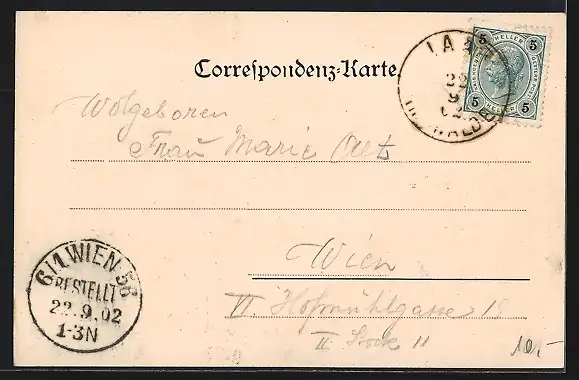 Correspondenz-Karte.
5 HELLER 5
5 HELLER 5
22
9
02
Wolgeboren
Frau Marie
Wien
VI. Hofmühlgasse 18
II Stock 11
6/1 WIEN 56
BESTELLT
22.9.02
1-3N
10,-